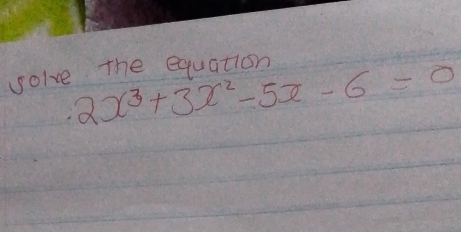 solve the equation
2x³+3x²-5x-6=0